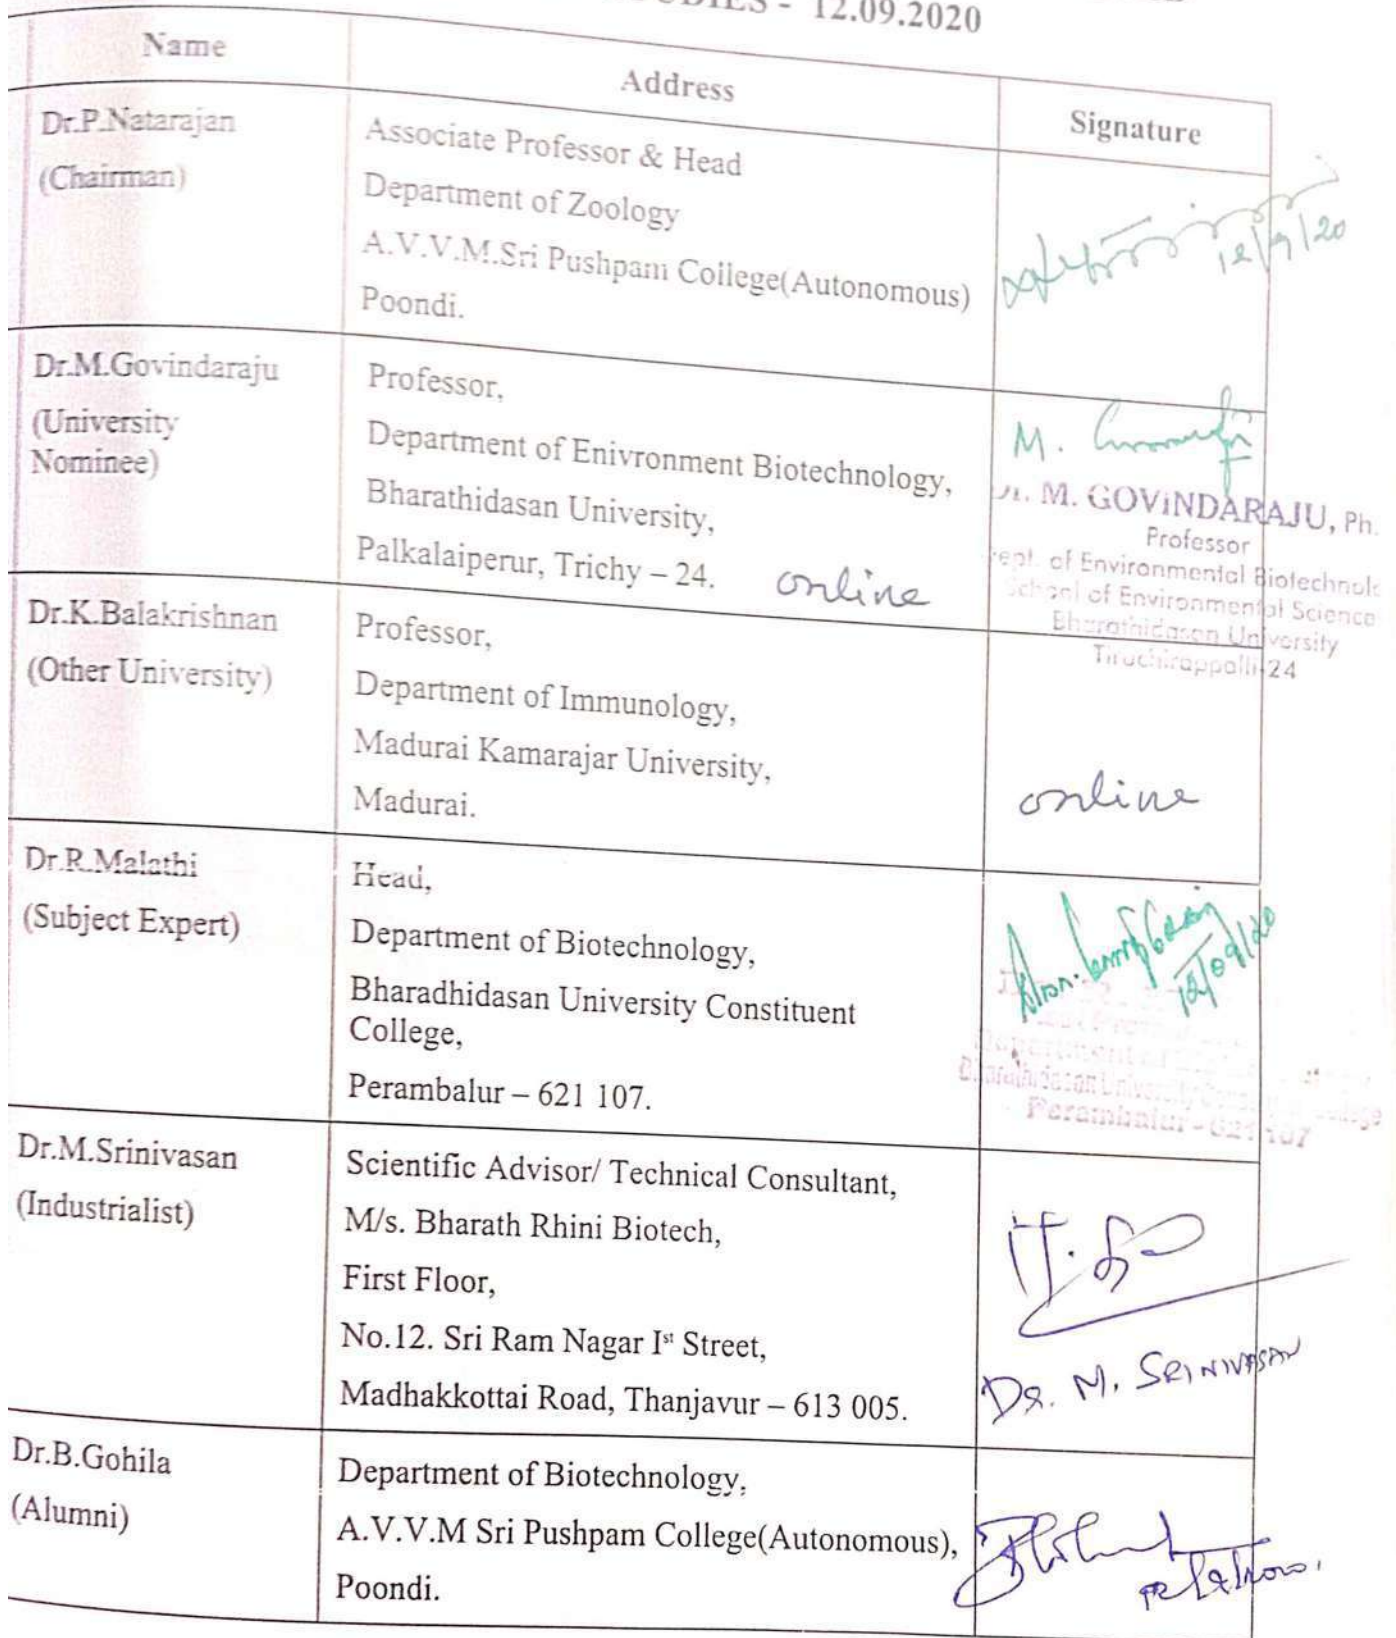 12.09.2020
Name
Address
Signature
Dr.P.Natarajan
(Chairman)
Associate Professor & Head
Department of Zoology
A.V.V.M.Sri Pushpam College(Autonomous)
Poondi.
12/9/20
Dr.M.Govindaraju
(University
Nominee)
Professor,
Department of Enivronment Biotechnology,
Bharathidasan University,
Palkalaiperur, Trichy – 24.
online
M.
M. GOVINDARAJU, Ph.
Professor
of Environmental Biotechnol
School of Environmental Science
Bharathidasan University
Tiruchirappalli-24
Dr.K.Balakrishnan
(Other University)
Professor,
Department of Immunology,
Madurai Kamarajar University,
Madurai.
online
Dr.R.Malathi
(Subject Expert)
Head,
Department of Biotechnology,
Bharadhidasan University Constituent
College,
Perambalur – 621 107.
12/09/20
Department of
Bharathidasan University College
Perambalur - 621 107
Dr.M.Srinivasan
(Industrialist)
Scientific Advisor/ Technical Consultant,
M/s. Bharath Rhini Biotech,
First Floor,
No.12. Sri Ram Nagar Ist Street,
Madhakkottai Road, Thanjavur – 613 005.
DR. M. SRINIVASAN
Dr.B.Gohila
(Alumni)
Department of Biotechnology,
A.V.V.M Sri Pushpam College(Autonomous),
Poondi.